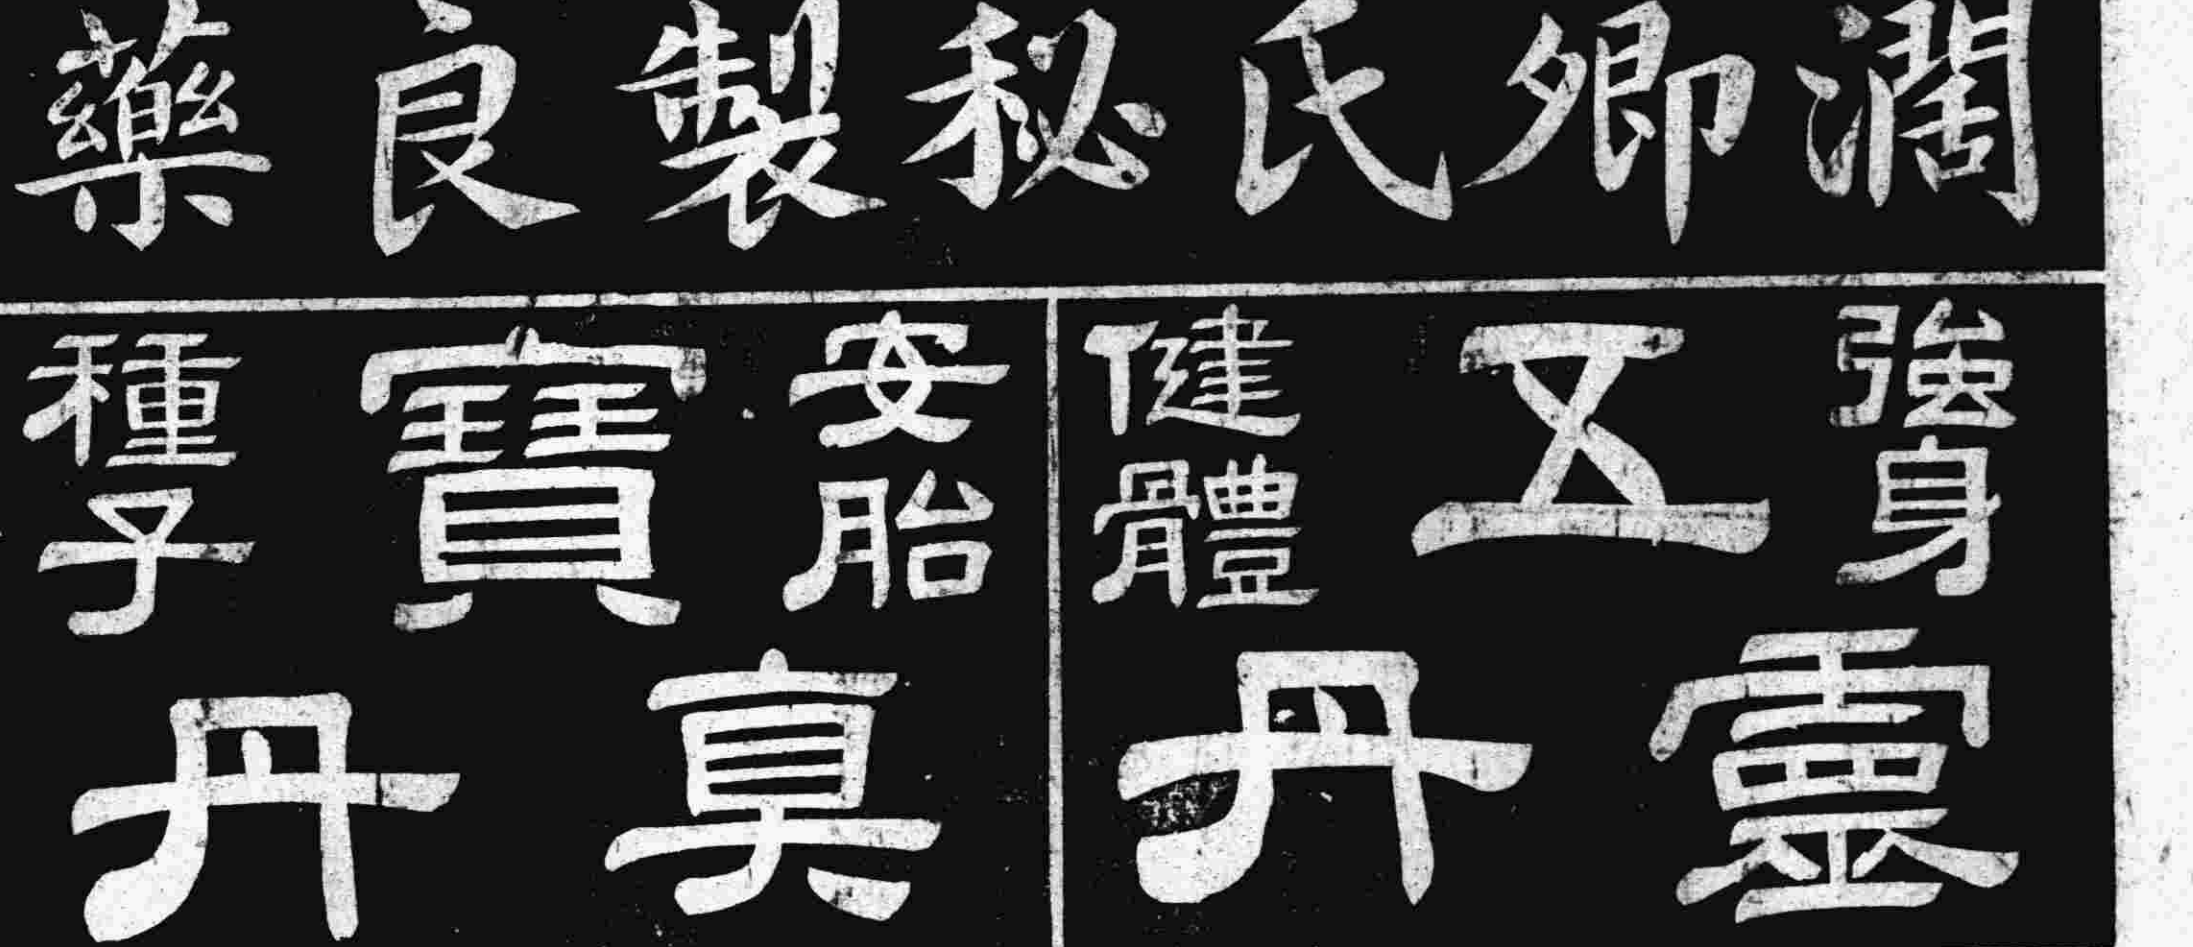 濶卿氏秘製良藥
強身
健體
五靈丹
安胎
種子
寶真丹